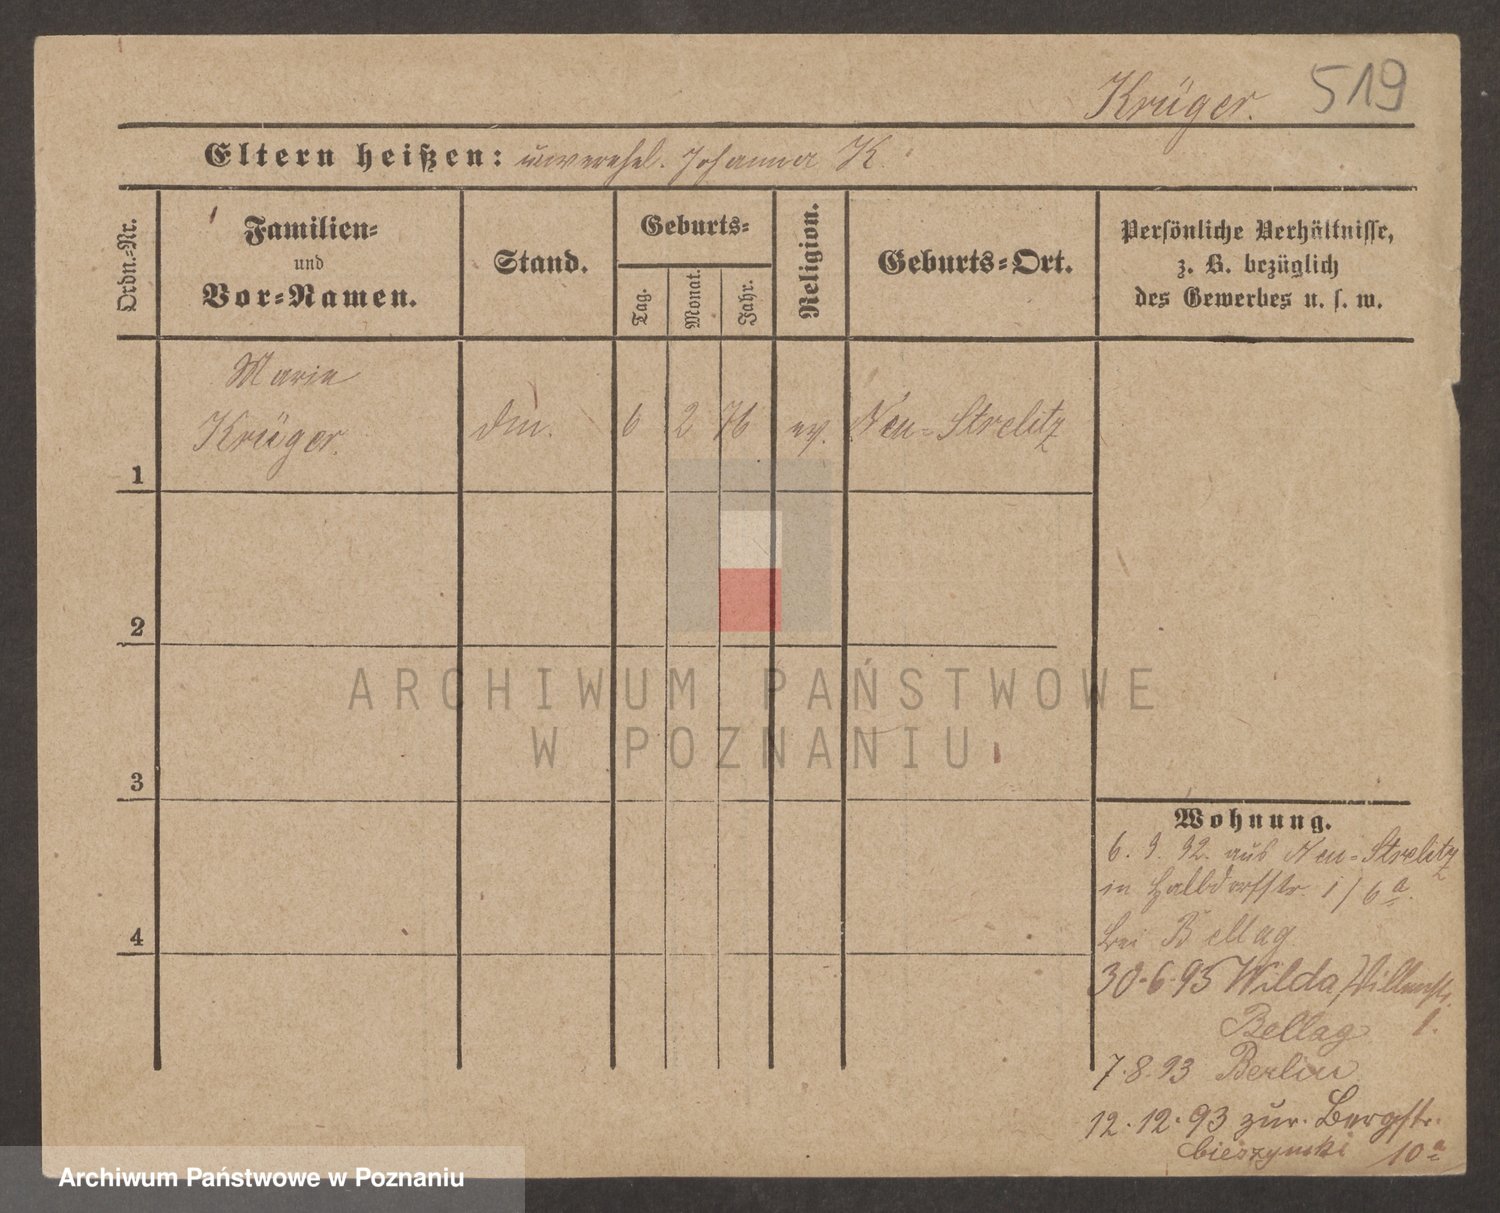 Krüger. 519
Eltern heißen: unverehel. Johanna K.
Ordn.-Nr.
Familien-
und
Vor-Namen.
Stand.
Geburts-
Tag.
Monat.
Jahr.
Religion.
Geburts-Ort.
Persönliche Verhältnisse,
z. B. bezüglich
des Gewerbes u. s. w.
Marie
Krüger.
1
6 2 76 ev. Neu-Strelitz
2
3
4
ARCHIWUM PAŃSTWOWE
W POZNANIU
Wohnung.
6. 9. 92. aus Neu-Strelitz
in Halbdorfstr. 1/6a.
bei Bellag
Wilda, Villenstr.
Bellag 1.
7.8.93 Berlin
12.12.93 zur. Bergstr.
Cieszynski 10a
Archiwum Państwowe w Poznaniu